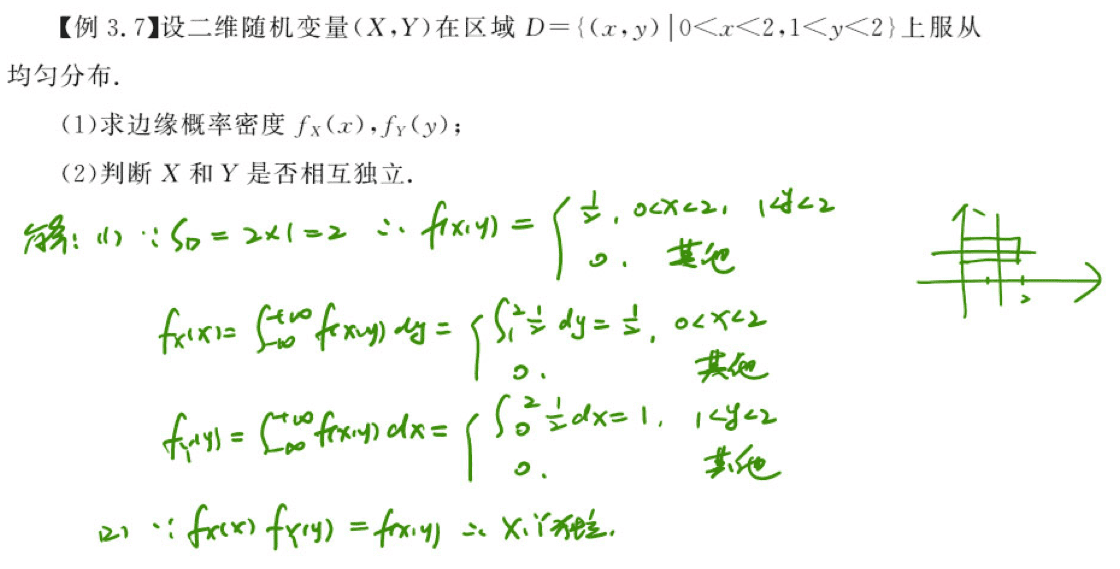 【例 3.7】设二维随机变量(X,Y)在区域 D={(x,y)|0<x<2,1<y<2}上服从
均匀分布.
(1)求边缘概率密度 f_X(x),f_Y(y);
(2)判断 X 和 Y 是否相互独立.
解: (1) ∵ S_D = 2×1 = 2 ∴ f(x,y) = { 1/2, 0<x<2, 1<y<2
0, 其他
f_X(x) = ∫_{-∞}^{+∞} f(x,y) dy = { ∫_1^2 1/2 dy = 1/2, 0<x<2
0, 其他
2
f_Y(y) = ∫_{-∞}^{+∞} f(x,y) dx = { ∫_0^2 1/2 dx = 1, 1<y<2
0, 其他
(2) ∵ f_X(x) f_Y(y) = f(x,y) ∴ X,Y独立.